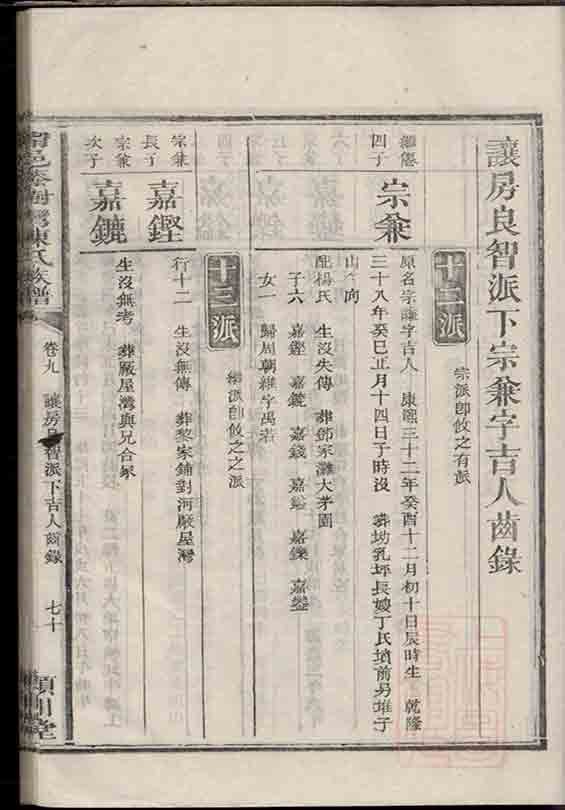 讓房良智派下宗兼字吉人齒錄
十二派
宗派卽攸之有派
四子
宗兼
原名宗謙字吉人 康熙三十二年癸酉十二月初十日辰時生 乾隆
三十八年癸巳正月十四日子時沒 葬坳乳坪長嫂丁氏墳前另堆子
山午向
配楊氏 生沒失傳 葬鄧家灘大茅園
子六 嘉鏗 嘉鏕 嘉錢 嘉 嘉鑠 嘉鑾
女一 歸周朝維字禹若
十三派
派卽攸之之派
宗兼
長子
嘉鏗
行十二 生沒無傳 葬黎家鋪對河厰屋灣
宗兼
次子
嘉鏕
生沒無考 葬厰屋灣與兄合冢
陳氏族譜
卷九 讓房良智派下吉人齒錄 七十
潁川堂